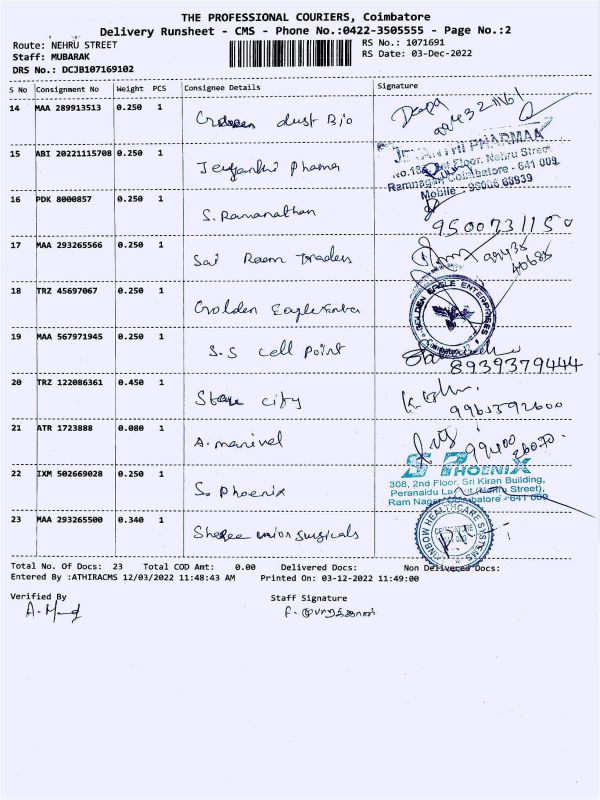 THE PROFESSIONAL COURIERS, Coimbatore
Delivery Runsheet - CMS - Phone No.:0422-3505555 - Page No.:2
Route: NEHRU STREET
RS No.: 1071691
Staff: MUBARAK
RS Date: 03-Dec-2022
DRS No.: DCJB107169102
S No Consignment No Weight PCS Consignee Details Signature
14 MAA 289913513 0.250 1 dust Bio
15 ABI 20221115708 0.250 1 Jeyanthi Pharma
JEYANTHI PHARMAA
Floor, Nehru Street
Ramnagar, Coimbatore - 641 009.
Mobile -
16 PDK 8000857 0.250 1 S. Ramanathan
9500731150
17 MAA 293265566 0.250 1 Sai Raam Traders
18 TRZ 45697067 0.250 1 Golden Eagle
GOLDEN EAGLE ENTERPRISES
19 MAA 567971945 0.250 1 S.S Cell Point
8939379444
20 TRZ 122086361 0.450 1 city
21 ATR 1723888 0.080 1 A. manivel
99400
26070.
S PHOENIX
308, 2nd Floor, Sri Kiran Building,
Peranaidu Layout (Nehru Street),
Ram Nagar, Coimbatore - 641 009
22 IXM 502669028 0.250 1 So Phoenix
23 MAA 293265500 0.340 1 Shree union Surgicals
HEALTHCARE SYSTEMS
Total No. Of Docs: 23 Total COD Amt: 0.00 Delivered Docs: Non Delivered Docs:
Entered By :ATHIRACMS 12/03/2022 11:48:43 AM Printed On: 03-12-2022 11:49:00
Verified By
Staff Signature